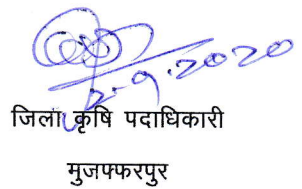 2.9.2020
जिला कृषि पदाधिकारी
मुजफ्फरपुर